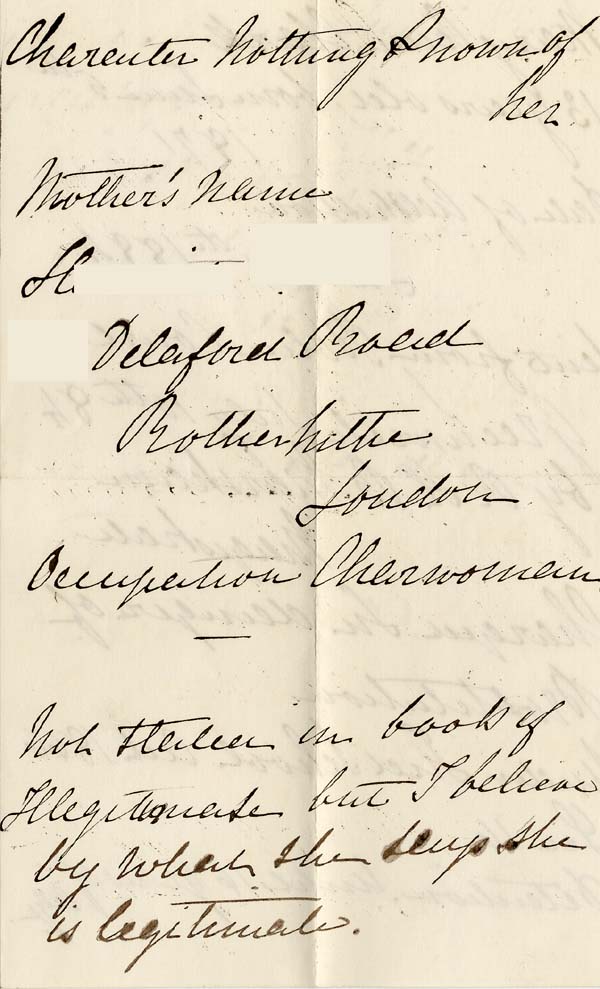 Character Nothing Known of
her.
Mother's name
H
Delaford Road
Rotherhithe
London
Occupation Charwoman
Not stated in book if
Illegitimate but I believe
by what she says she
is legitimate.